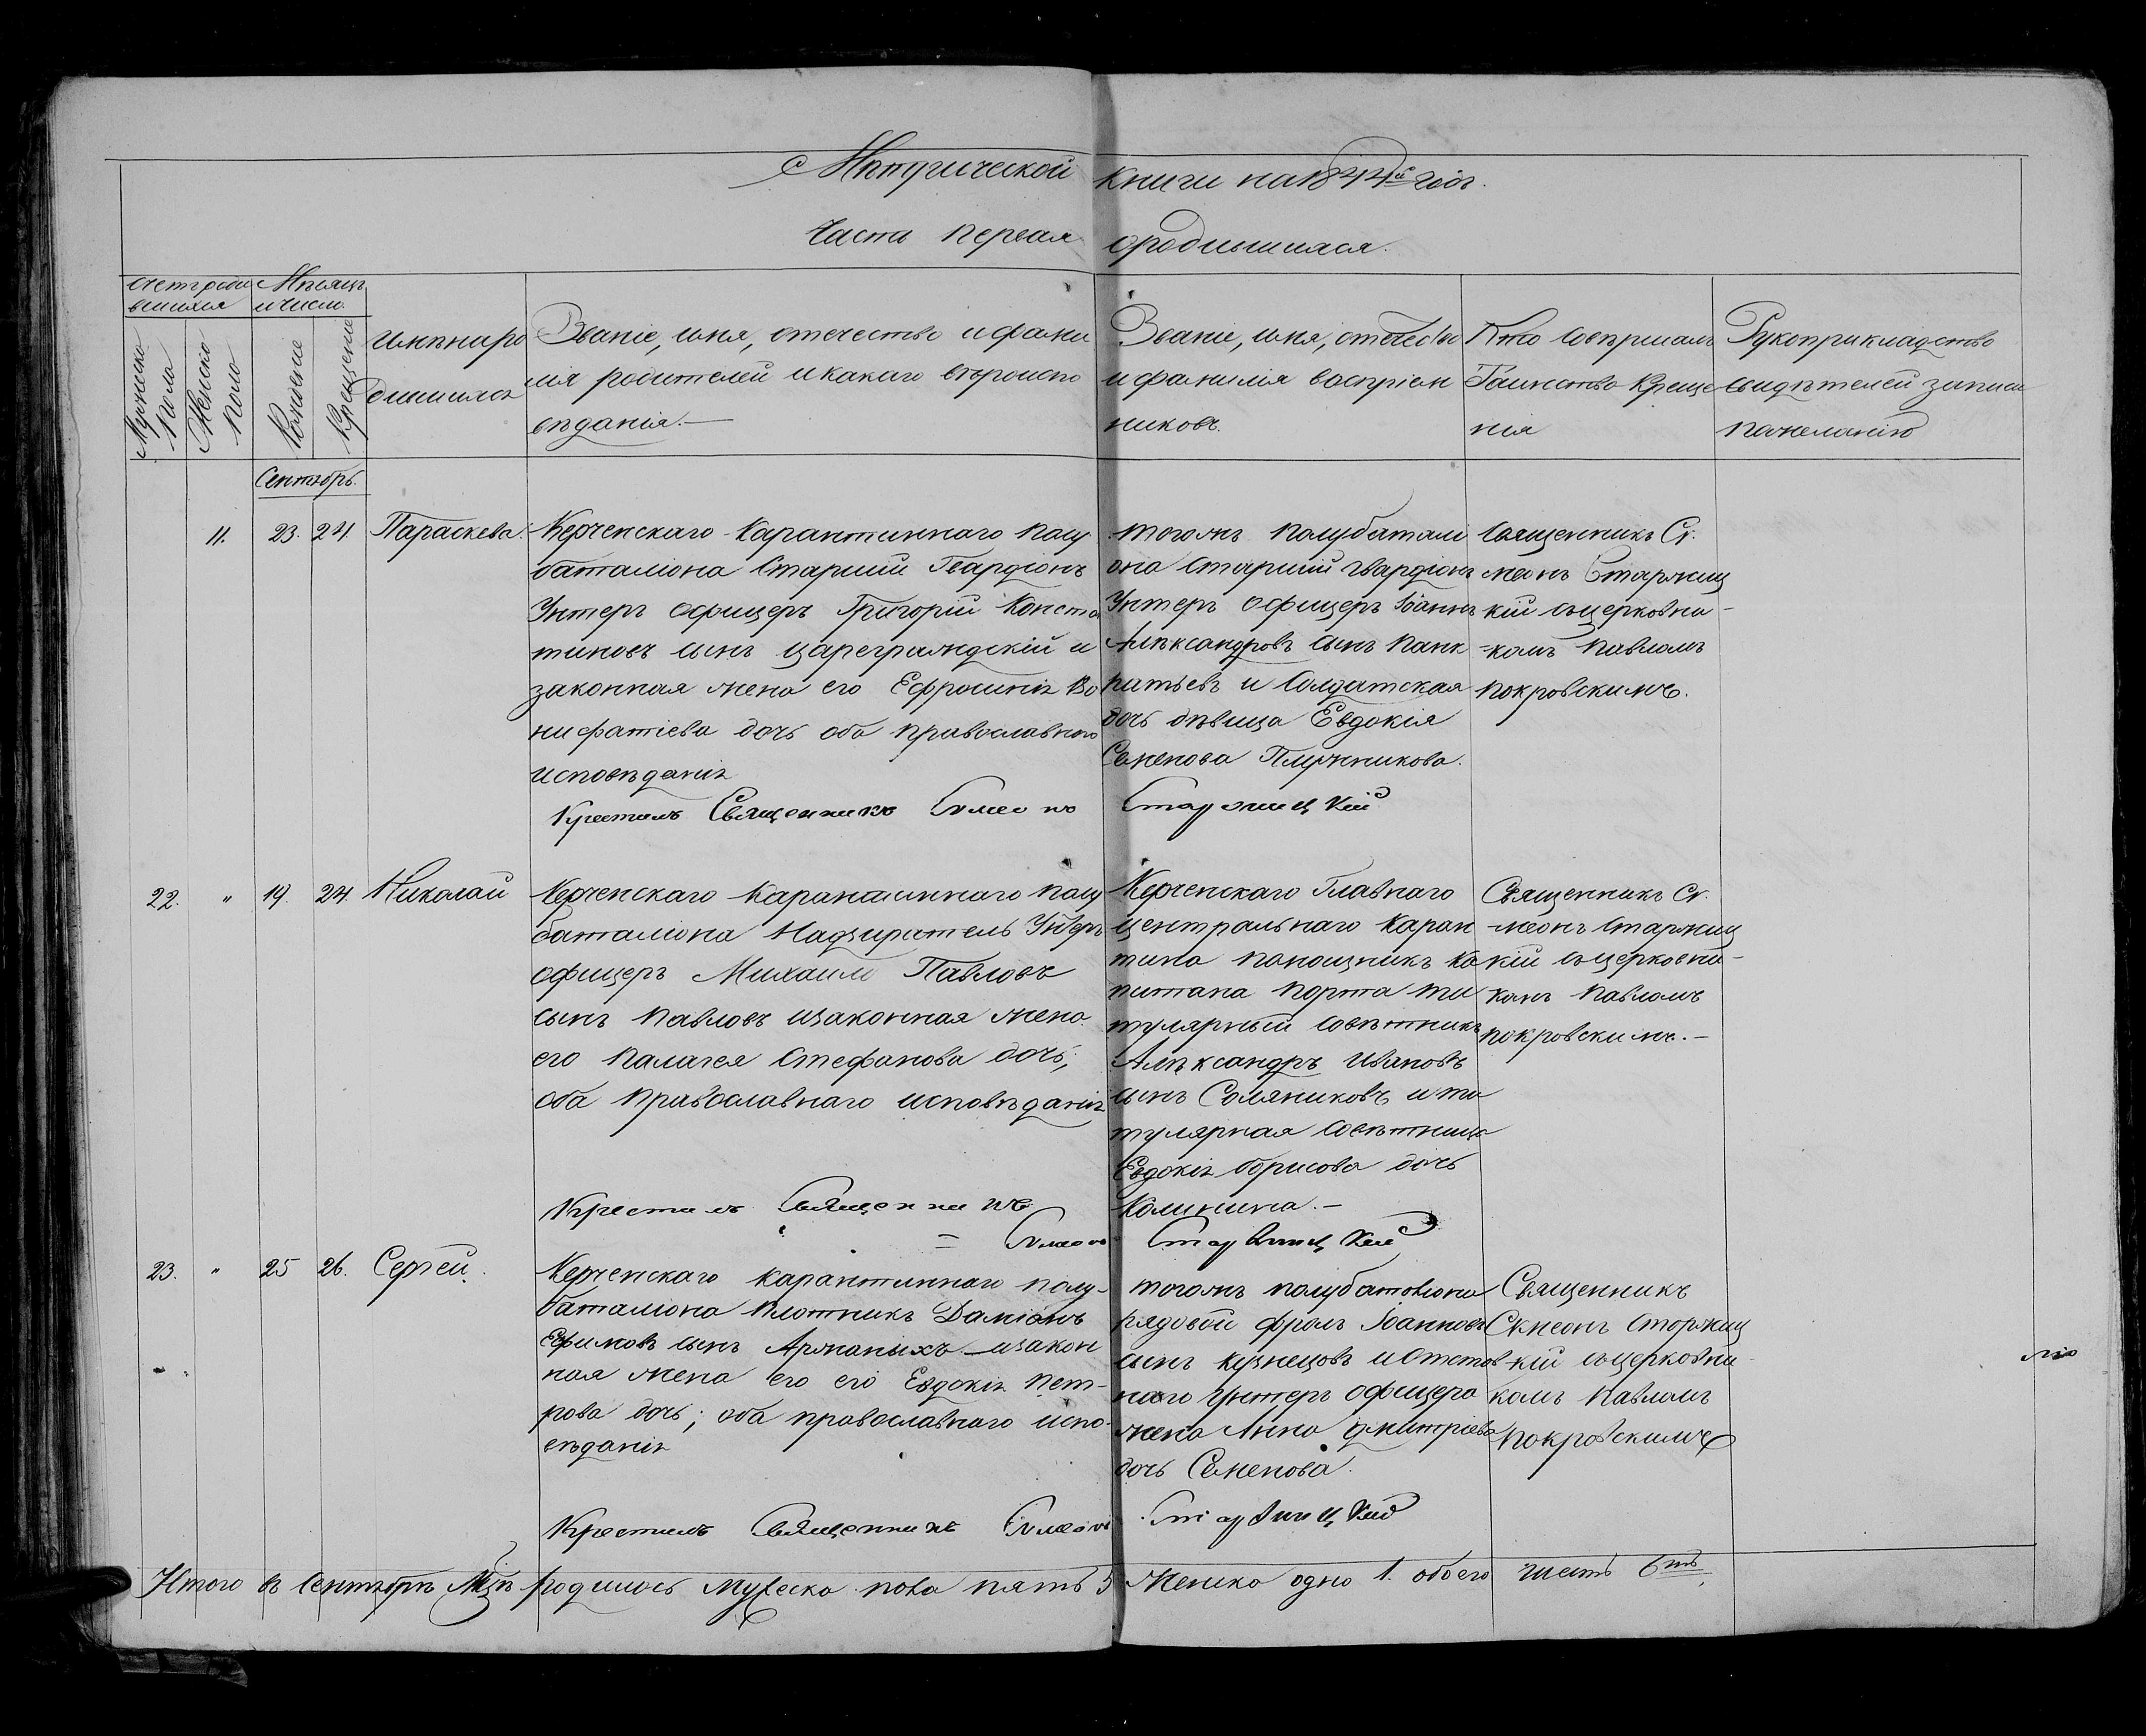 Метрической книги на 1844й годъ.
Часть первая о родившихся.
Счетъ роди Мѣсяцъ
вшихся и число
Мужеска пола
Женска пола
Рожденіе
Крещеніе
Имена ро
дившихся
Званіе, имя, отечество и фами
лія родителей и какаго вѣроиспо
вѣданія.—
Званіе, имя, отечество
и фамилія воспріем
никовъ.
Кто совершалъ
Таинство Креще
нія
Рукоприкладство
свидѣтелей записи
по желанію
Сентябрь.
11. 23. 24. Параскева.
Керченскаго Карантиннаго полу
баталіона Старшій Гвардіонъ
Унтеръ офицеръ Григорій Конста
тиновъ сынъ Цареградскій и
законная жена его Ефросинія Во
нифатіева дочь оба православнаго
исповѣданія
Крестилъ Священникъ Симеонъ Старжицкій
тогожъ полубатали
она Старшій Гвардіонъ
Унтеръ офицеръ Іоаннъ
Александровъ сынъ Панк
ратьевъ и Солдатская
дочь дѣвица Евдокія
Семенова Плужникова.
Священникъ Си
меонъ Старжиц
кій съ церковни-
-комъ Павломъ
Покровскимъ.
22. " 19. 24. Николай
Керченскаго Карантиннаго полу
баталіона Надзиратель Унтеръ
офицеръ Михаилъ Павловъ
сынъ Павловъ и законная жена
его Палагея Стефанова дочь;
оба православнаго исповѣданія
Крестилъ Священникъ
= Симеонъ Старжицкій
Керченскаго Главнаго
центральнаго Каран
тина помощникъ Ка
питана порта ти
тулярный совѣтникъ
Александръ Ивановъ
сынъ Соляниковъ и ти
тулярная совѣтница
Евдокія Борисова дочь
Калинина.—
Священникъ Си
-меонъ Старжиц
кій съ церковни-
комъ Павломъ
Покровскимъ.—
23. " 25 26. Сергей.
Керченскаго Карантиннаго полу-
баталіона плотникъ Даміанъ
Ефимовъ сынъ Аржаныхъ — и закон
ная жена его его Евдокія Пет-
рова дочь; оба православнаго испо-
вѣданія
Крестилъ Священникъ Симеонъ Старжицкій
тогожъ полубаталіона
рядовой Фролъ Іоанновъ
сынъ Кузнецовъ и Отстав
наго Унтеръ офицера
жена Анна Дмитріева
дочь Семенова.
Священникъ
Симеонъ Старжиц
-кій съ церковни-
комъ Павломъ
Покровскимъ
Итого въ Сентябрѣ Мцѣ родилось мужеска пола пять 5 Женска одно 1. обоего шесть 6ть.